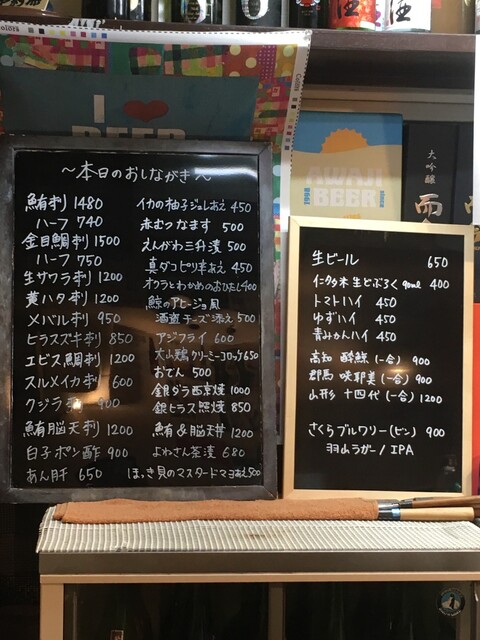 I ❤ BEER
AWAJI BEER
SINCE
大吟醸
～本日のおしながき～
鮪刺 1480
ハーフ 740
金目鯛刺 1500
ハーフ 750
生サワラ刺 1200
黄ハタ刺 1200
メバル刺 950
ヒラスズキ刺 850
エビス鯛刺 1200
スルメイカ刺 600
クジラ 900
鮪脳天刺 1200
白子ポン酢 900
あん肝 650
イカの柚子ジュレあえ 450
赤むつなます 500
えんがわ三升漬 500
真ダコピリ辛あえ 450
オクラとわかめのおひたし 400
鯨のアヒージョ風
酒盗チーズ添え 500
アジフライ 600
大山鶏クリーミーコロッケ 650
おでん 500
銀ダラ西京焼 1000
銀ヒラス照焼 850
鮪&脳天丼 1200
よねさん茶漬 680
ほっき貝のマスタードマヨあえ 500
生ビール 650
仁多米生どぶろく 90ml 400
トマトハイ 450
ゆずハイ 450
青みかんハイ 450
高知 酔鯨 (一合) 900
群馬 咲耶美 (一合) 900
山形 十四代 (一合) 1200
さくらブルワリー(ビン) 900
羽山ラガー / IPA